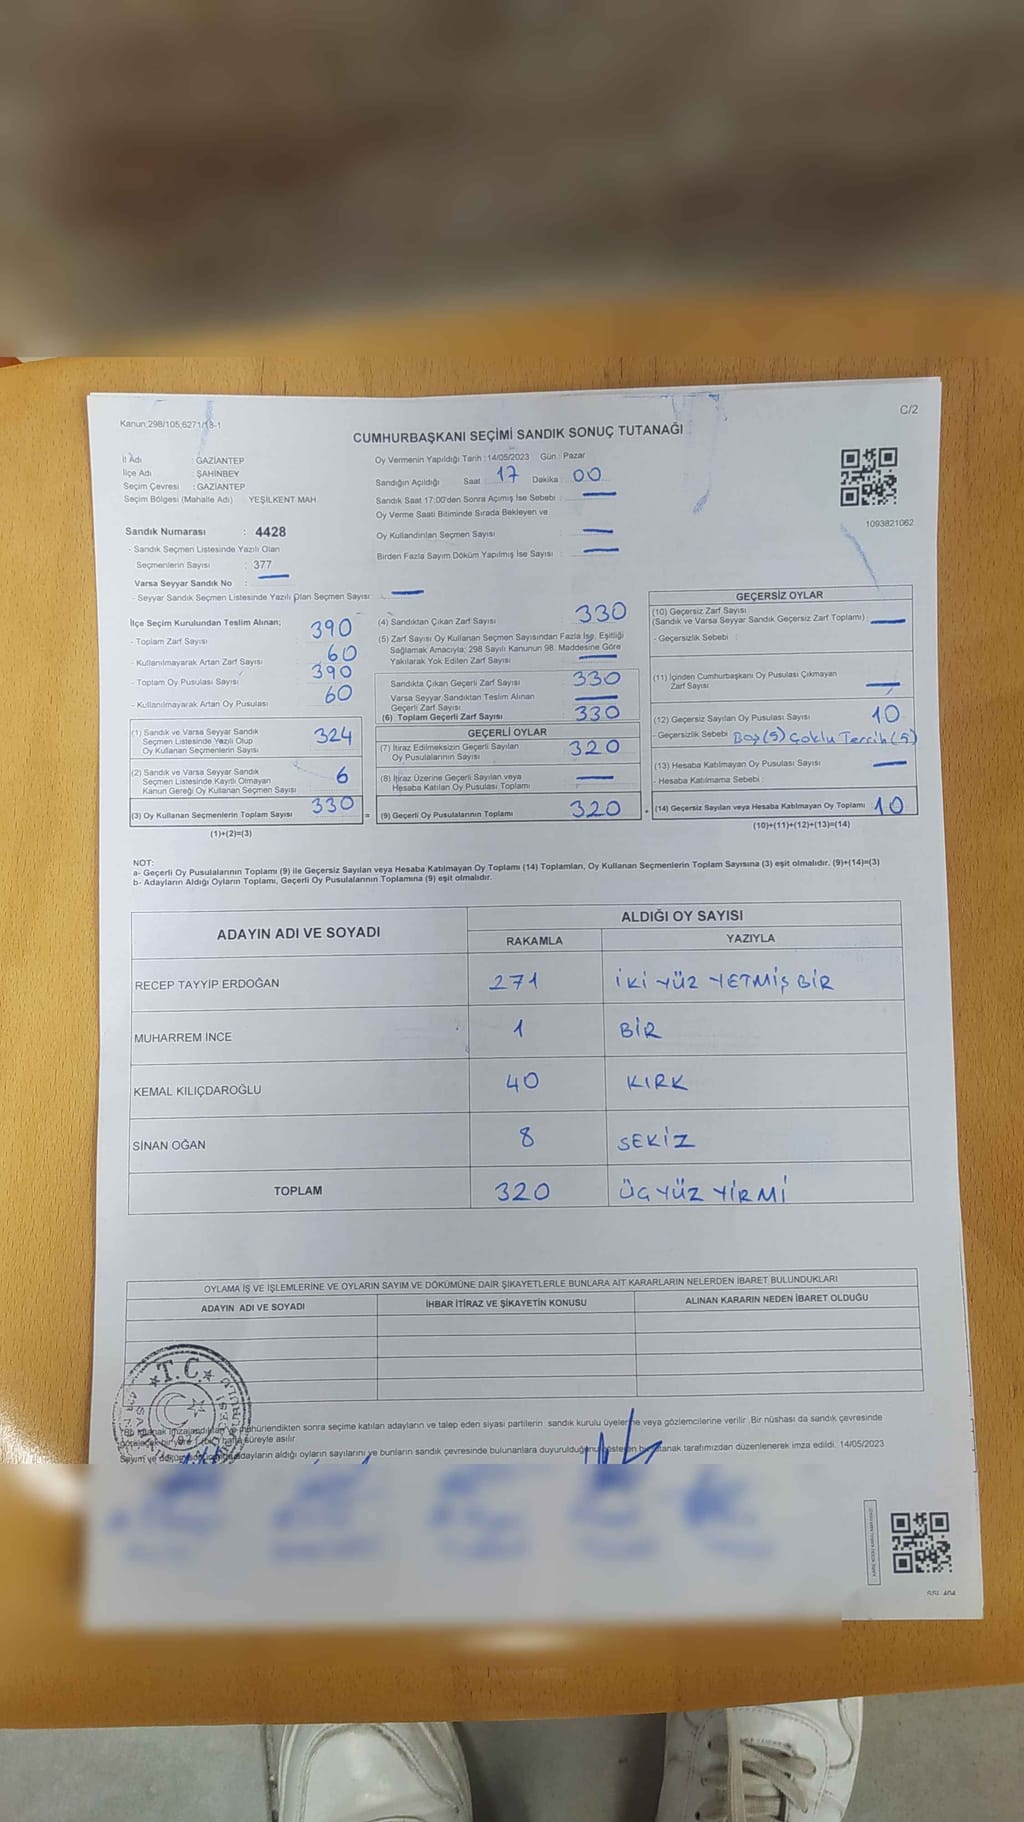 Kanun,298/105,6271/18-1
C/2
CUMHURBAŞKANI SEÇİMİ SANDIK SONUÇ TUTANAĞI
İl Adı : GAZİANTEP
İlçe Adı : ŞAHİNBEY
Seçim Çevresi : GAZİANTEP
Seçim Bölgesi (Mahalle Adı) YEŞİLKENT MAH.
Sandık Numarası : 4428
- Sandık Seçmen Listesinde Yazılı Olan
Seçmenlerin Sayısı : 377
Varsa Seyyar Sandık No : —
- Seyyar Sandık Seçmen Listesinde Yazılı Olan Seçmen Sayısı : —
Oy Vermenin Yapıldığı Tarih : 14/05/2023 Gün : Pazar
Sandığın Açıldığı Saat : 17 Dakika : 00
Sandık Saat 17:00'den Sonra Açımış İse Sebebi : —
Oy Verme Saati Bitiminde Sırada Bekleyen ve
Oy Kullandırılan Seçmen Sayısı : —
Birden Fazla Sayım Döküm Yapılmış İse Sayısı : —
1093821062
İlçe Seçim Kurulundan Teslim Alınan;
- Toplam Zarf Sayısı : 390
- Kullanılmayarak Artan Zarf Sayısı : 60
- Toplam Oy Pusulası Sayısı : 390
- Kullanılmayarak Artan Oy Pusulası : 60
(1) Sandık ve Varsa Seyyar Sandık
Seçmen Listesinde Yazılı Olup
Oy Kullanan Seçmenlerin Sayısı : 324
(2) Sandık ve Varsa Seyyar Sandık
Seçmen Listesinde Kayıtlı Olmayan
Kanun Gereği Oy Kullanan Seçmen Sayısı : 6
(3) Oy Kullanan Seçmenlerin Toplam Sayısı : 330
(1)+(2)=(3)
(4) Sandıktan Çıkan Zarf Sayısı : 330
(5) Zarf Sayısı Oy Kullanan Seçmen Sayısından Fazla İse, Eşitliği
Sağlamak Amacıyla; 298 Sayılı Kanunun 98. Maddesine Göre
Yakılarak Yok Edilen Zarf Sayısı : —
Sandıkta Çıkan Geçerli Zarf Sayısı : 330
Varsa Seyyar Sandıktan Teslim Alınan
Geçerli Zarf Sayısı : —
(6) Toplam Geçerli Zarf Sayısı : 330
GEÇERLİ OYLAR
(7) İtiraz Edilmeksizin Geçerli Sayılan
Oy Pusulalarının Sayısı : 320
(8) İtiraz Üzerine Geçerli Sayılan veya
Hesaba Katılan Oy Pusulası Toplamı : —
(9) Geçerli Oy Pusulalarının Toplamı : 320
GEÇERSİZ OYLAR
(10) Geçersiz Zarf Sayısı
(Sandık ve Varsa Seyyar Sandık Geçersiz Zarf Toplamı) : —
- Geçersizlik Sebebi :
(11) İçinden Cumhurbaşkanı Oy Pusulası Çıkmayan
Zarf Sayısı : —
(12) Geçersiz Sayılan Oy Pusulası Sayısı : 10
- Geçersizlik Sebebi : Boş (5) Çoklu Tercih (5)
(13) Hesaba Katılmayan Oy Pusulası Sayısı : —
- Hesaba Katılmama Sebebi :
(14) Geçersiz Sayılan veya Hesaba Katılmayan Oy Toplamı : 10
(10)+(11)+(12)+(13)=(14)
NOT:
a- Geçerli Oy Pusulalarının Toplamı (9) ile Geçersiz Sayılan veya Hesaba Katılmayan Oy Toplamı (14) Toplamları, Oy Kullanan Seçmenlerin Toplam Sayısına (3) eşit olmalıdır. (9)+(14)=(3)
b- Adayların Aldığı Oyların Toplamı, Geçerli Oy Pusulalarının Toplamına (9) eşit olmalıdır.
ADAYIN ADI VE SOYADI
ALDIĞI OY SAYISI
RAKAMLA YAZIYLA
RECEP TAYYİP ERDOĞAN 271 İKİ YÜZ YETMİŞ BİR
MUHARREM İNCE 1 BİR
KEMAL KILIÇDAROĞLU 40 KIRK
SİNAN OĞAN 8 SEKİZ
TOPLAM 320 ÜÇ YÜZ YİRMİ
OYLAMA İŞ VE İŞLEMLERİNE VE OYLARIN SAYIM VE DÖKÜMÜNE DAİR ŞİKAYETLERLE BUNLARA AİT KARARLARIN NELERDEN İBARET BULUNDUKLARI
ADAYIN ADI VE SOYADI İHBAR İTİRAZ VE ŞİKAYETİN KONUSU ALINAN KARARIN NEDEN İBARET OLDUĞU
T.C.
mühürlendikten sonra seçime katılan adayların ve talep eden siyasi partilerin sandık kurulu üyelerine veya gözlemcilerine verilir. Bir nüshası da sandık çevresinde
süreyle asılır.
adayların aldığı oyların sayılarını ve bunların sandık çevresinde bulunanlara duyurulduğunu gösteren bu tutanak tarafımızdan düzenlenerek imza edildi. 14/05/2023